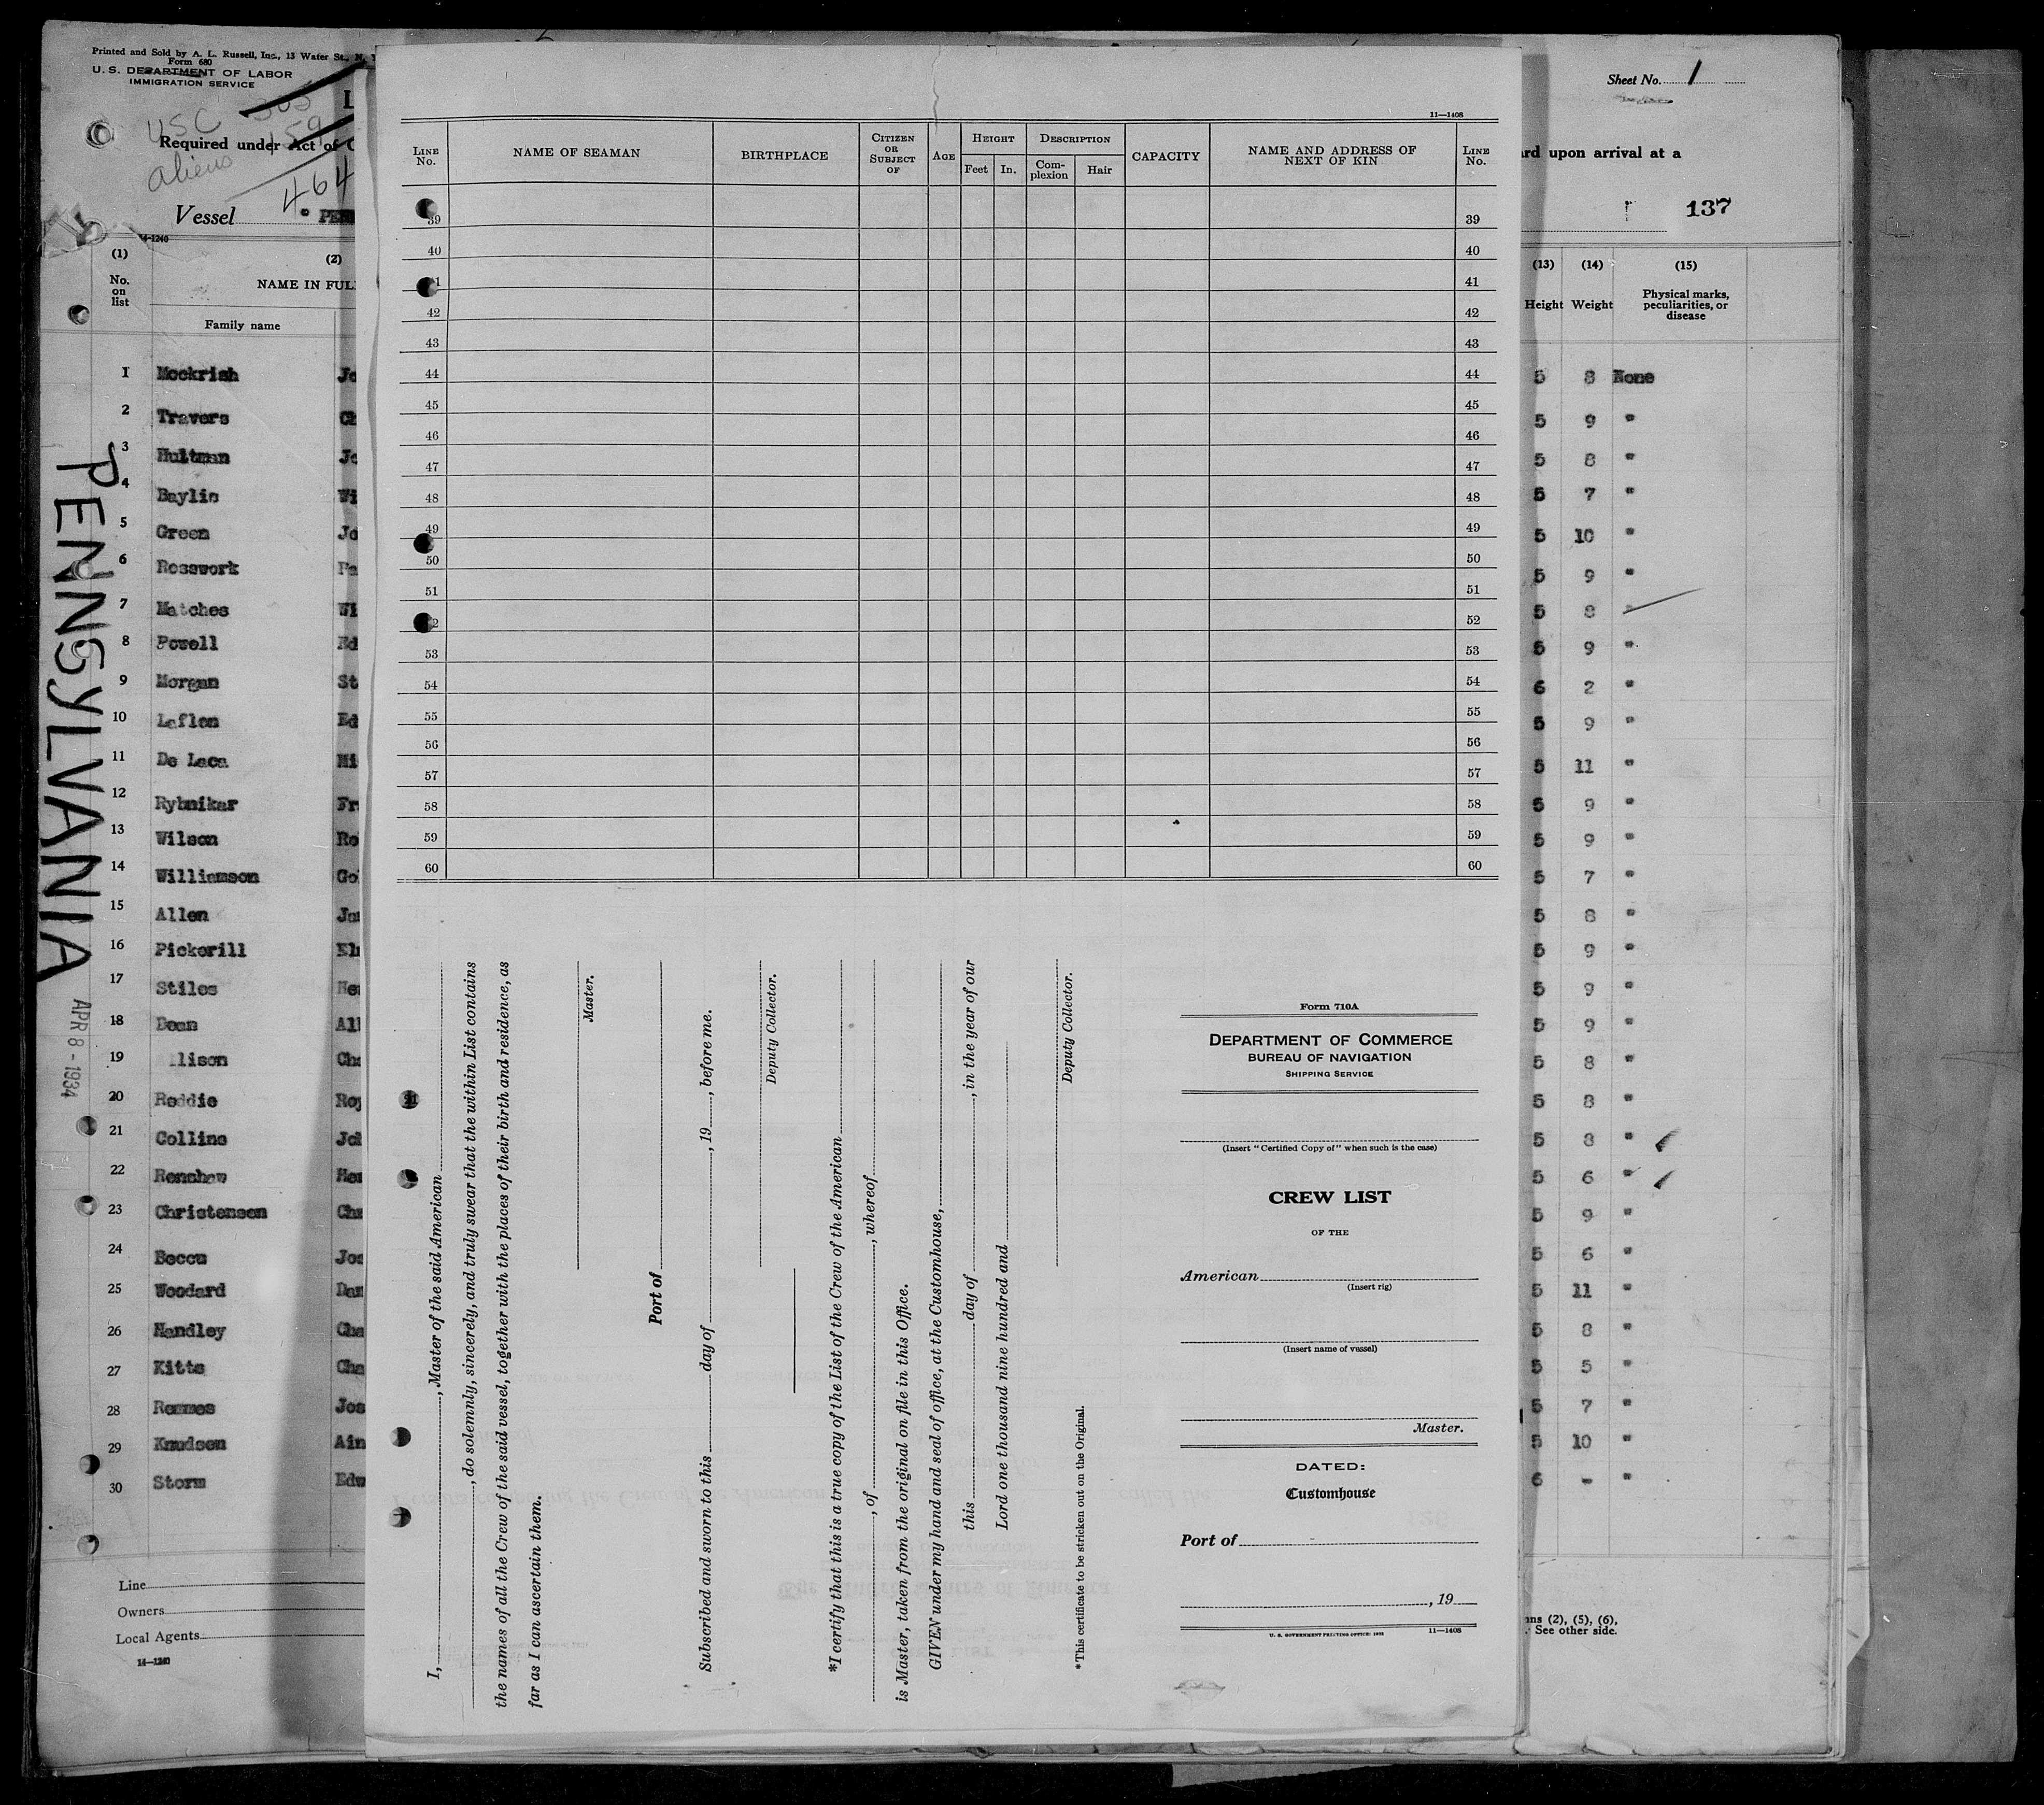 Printed and Sold by A. L. Russell, Inc., 13 Water St., N. Y.
Form 680
U. S. DEPARTMENT OF LABOR
IMMIGRATION SERVICE
USC 305
159
aliens
464
L
Required under Act of
Vessel PEN
14-1240
(1)
No. on list
(2)
NAME IN FUL
Family name
1 Mockrish Jo
2 Travers Ch
3 Hultman Jo
4 Baylis Wi
5 Green Jo
6 Rosswork Pa
7 Matches Wi
8 Powell Ed
9 Morgan St
10 Laflen Ed
11 De Laca Mi
12 Rybnikar Fr
13 Wilson Ro
14 Williamson Go
15 Allen Ja
16 Pickerill El
17 Stiles He
18 Dean Al
19 llison Cha
20 Reddie Roy
21 Collins Joh
22 Renshaw Hen
23 Christensen Chr
24 Boccu Jos
25 Woodard Dan
26 Handley Cha
27 Kitts Cha
28 Remmes Jos
29 Knudsen Ain
30 Storm Edw
Line
Owners
Local Agents
14-1240
PENNSYLVANIA
APR 8 - 1934
11-1408
LINE No.
NAME OF SEAMAN
BIRTHPLACE
CITIZEN OR SUBJECT OF
AGE
HEIGHT
Feet In.
DESCRIPTION
Complexion Hair
CAPACITY
NAME AND ADDRESS OF NEXT OF KIN
LINE No.
39 39
40 40
41 41
42 42
43 43
44 44
45 45
46 46
47 47
48 48
49 49
50 50
51 51
52 52
53 53
54 54
55 55
56 56
57 57
58 58
59 59
60 60
I, , Master of the said American
, do solemnly, sincerely, and truly swear that the within List contains
the names of all the Crew of the said vessel, together with the places of their birth and residence, as
far as I can ascertain them.
Master.
Port of
Subscribed and sworn to this day of , 19 , before me.
Deputy Collector.
*I certify that this is a true copy of the List of the Crew of the American
, of , whereof
is Master, taken from the original on file in this Office.
GIVEN under my hand and seal of office, at the Customhouse,
this day of , in the year of our
Lord one thousand nine hundred and
Deputy Collector.
*This certificate to be stricken out on the Original.
Form 710A
DEPARTMENT OF COMMERCE
BUREAU OF NAVIGATION
SHIPPING SERVICE
(Insert "Certified Copy of" when such is the case)
CREW LIST
OF THE
American
(Insert rig)
(Insert name of vessel)
Master.
DATED:
Customhouse
Port of
, 19
U. S. GOVERNMENT PRINTING OFFICE: 11-1408
Sheet No. 1
rd upon arrival at a
137
(13)
Height
(14)
Weight
(15)
Physical marks, peculiarities, or disease
5 8 None
5 9 "
5 8 "
5 7 "
5 10 "
5 9 "
5 8 "
5 9 "
6 2 "
5 9 "
5 11 "
5 9 "
5 9 "
5 7 "
5 8 "
5 9 "
5 9 "
5 9 "
5 8 "
5 8 "
5 8 "
5 6 "
5 9 "
5 6 "
5 11 "
5 8 "
5 5 "
5 7 "
5 10 "
6 - "
ns (2), (5), (6),
. See other side.